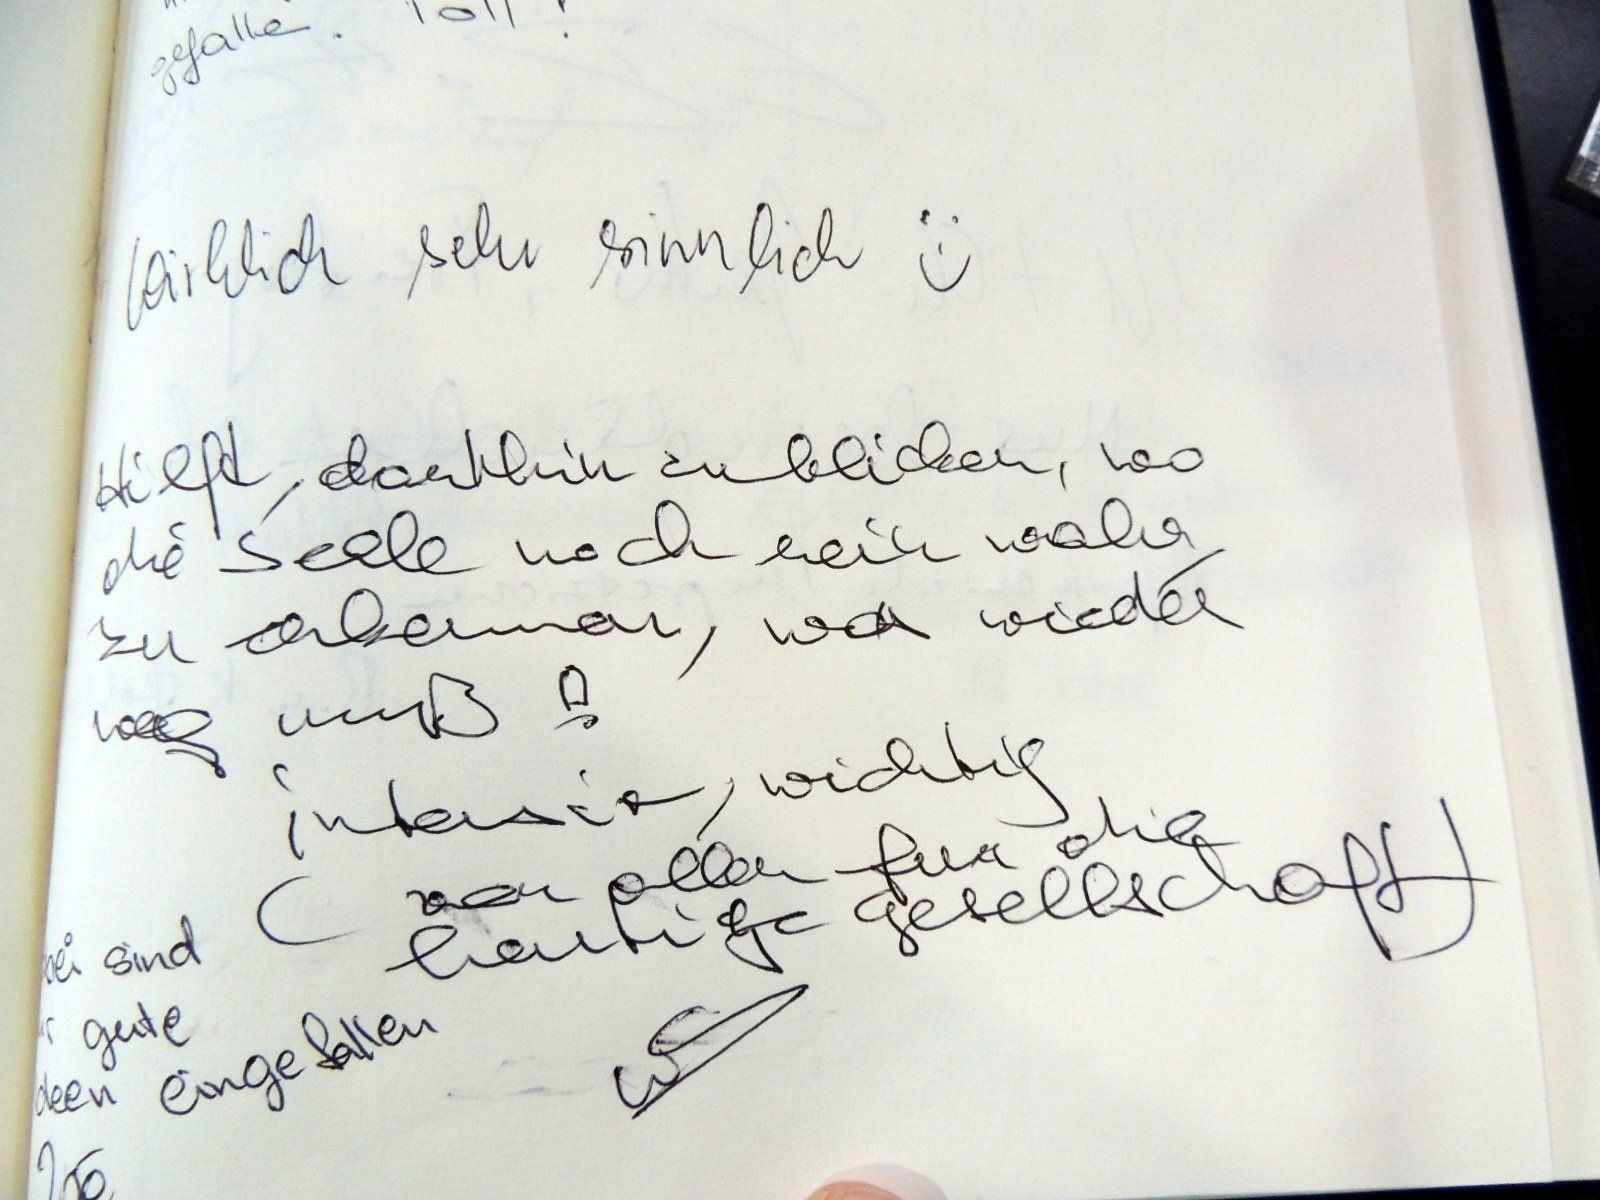 gefalle. Toll!
Wirklich sehr sinnlich
Hilft, dorthin zu blicken, wo
die Seele noch rein wahr
zu erkennen, wer wieder
weg muß!
intensiv, wichtig
(vor allem für die
heutige Gesellschaft)
bei sind
gute
deen eingefallen